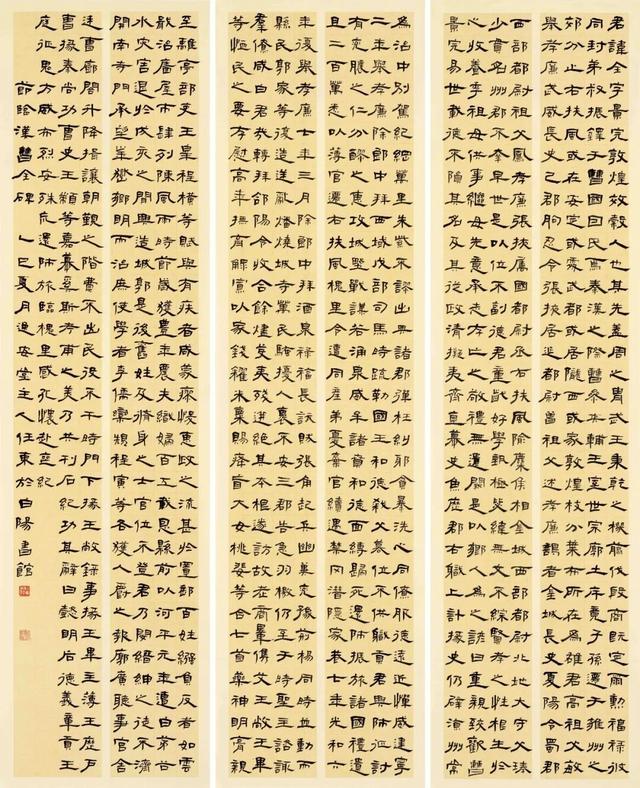 君諱全字景完敦煌效穀人也其先蓋周之胄武王秉乾之機翦伐殷商既定爾勳福祿攸
同封弟叔振鐸于曹國因氏焉秦漢之際曹參夾輔王室世宗廓土斥竟子孫遷于雍州之
郊分止右扶風或在安定或處武都或居隴西或家敦煌枝分葉布所在為雄君高祖父敏
舉孝廉武威長史巴郡朐忍令張掖居延都尉曾祖父述孝廉謁者金城長史夏陽令蜀郡
西部都尉祖父鳳孝廉張掖屬國都尉丞右扶風隃麋侯相金城西部都尉北地大守父琫
少貫名州郡不幸早世是以位不副德君童齔好學甄極毖緯無文不綜賢孝之性根生於
心收養季祖母供事繼母先意承志存亡之敬禮無遺闕是以鄉人為之諺曰重親致歡曹
景完易世載德不隕其名及其從政清擬夷齊直慕史魚歷郡右職上計掾史仍辟涼州常
為治中別駕紀綱萬里朱紫不謬出典諸郡彈枉糾邪貪暴洗心同僚服德遠近憚威建寧
二年舉孝廉除郎中拜西域戊部司馬時疏勒國王和德弒父篡位不供職貢君興師征討
有兗膿之仁分醪之惠攻城野戰謀若涌泉威牟諸賁和德面縛歸死還師振旅諸國禮遺
且二百萬悉以薄官遷右扶風槐里令遭同產弟憂棄官續遇禁冈潛隱家巷七年光和六
年復舉孝廉七年三月除郎中拜酒泉祿福長訞賊張角起兵幽冀兗豫荊楊同時並動而
縣民郭家等復造逆亂燔燒城寺萬民騷擾人裹不安三郡告急羽檄仍至于時聖主諮諏
羣僚咸曰君哉轉拜郃陽令收合餘燼芟夷殘迸絕其本根遂訪故老商量儁艾王敞王畢
等恤民之要存慰高年撫育鰥寡以家錢糴米粟賜癃盲大女桃婓等合七首藥神明膏親
至離亭部吏王皐程橫等賦與有疾者咸蒙瘳悛惠政之流甚於置郵百姓繈負反者如雲
戢治廧屋市肆列陳風雨時節歲獲豐年農夫織婦百工戴恩縣前以河平元年遭白茅谷
水災害退於戌亥之間興造城郭是後舊姓及脩身之士官位不登君乃閔縉紳之徒不濟
開南寺門承望華嶽鄉明而治庶使學者李儒欒規程寅等各獲人爵之報廓廣聽事官舍
廷曹廊閤升降揖讓朝覲之階費不出民役不干時門下掾王敞錄事掾王畢主簿王歷戶
曹掾秦尚功曹史王顓等嘉慕奚斯考甫之美乃共刊石紀功其辭曰懿明后德義章貢王
庭征鬼方威布烈安殊巟還師旅臨槐里感孔懷赴喪紀
節臨漢曹全碑 乙巳夏月迎安堂主人任東於白陽書館